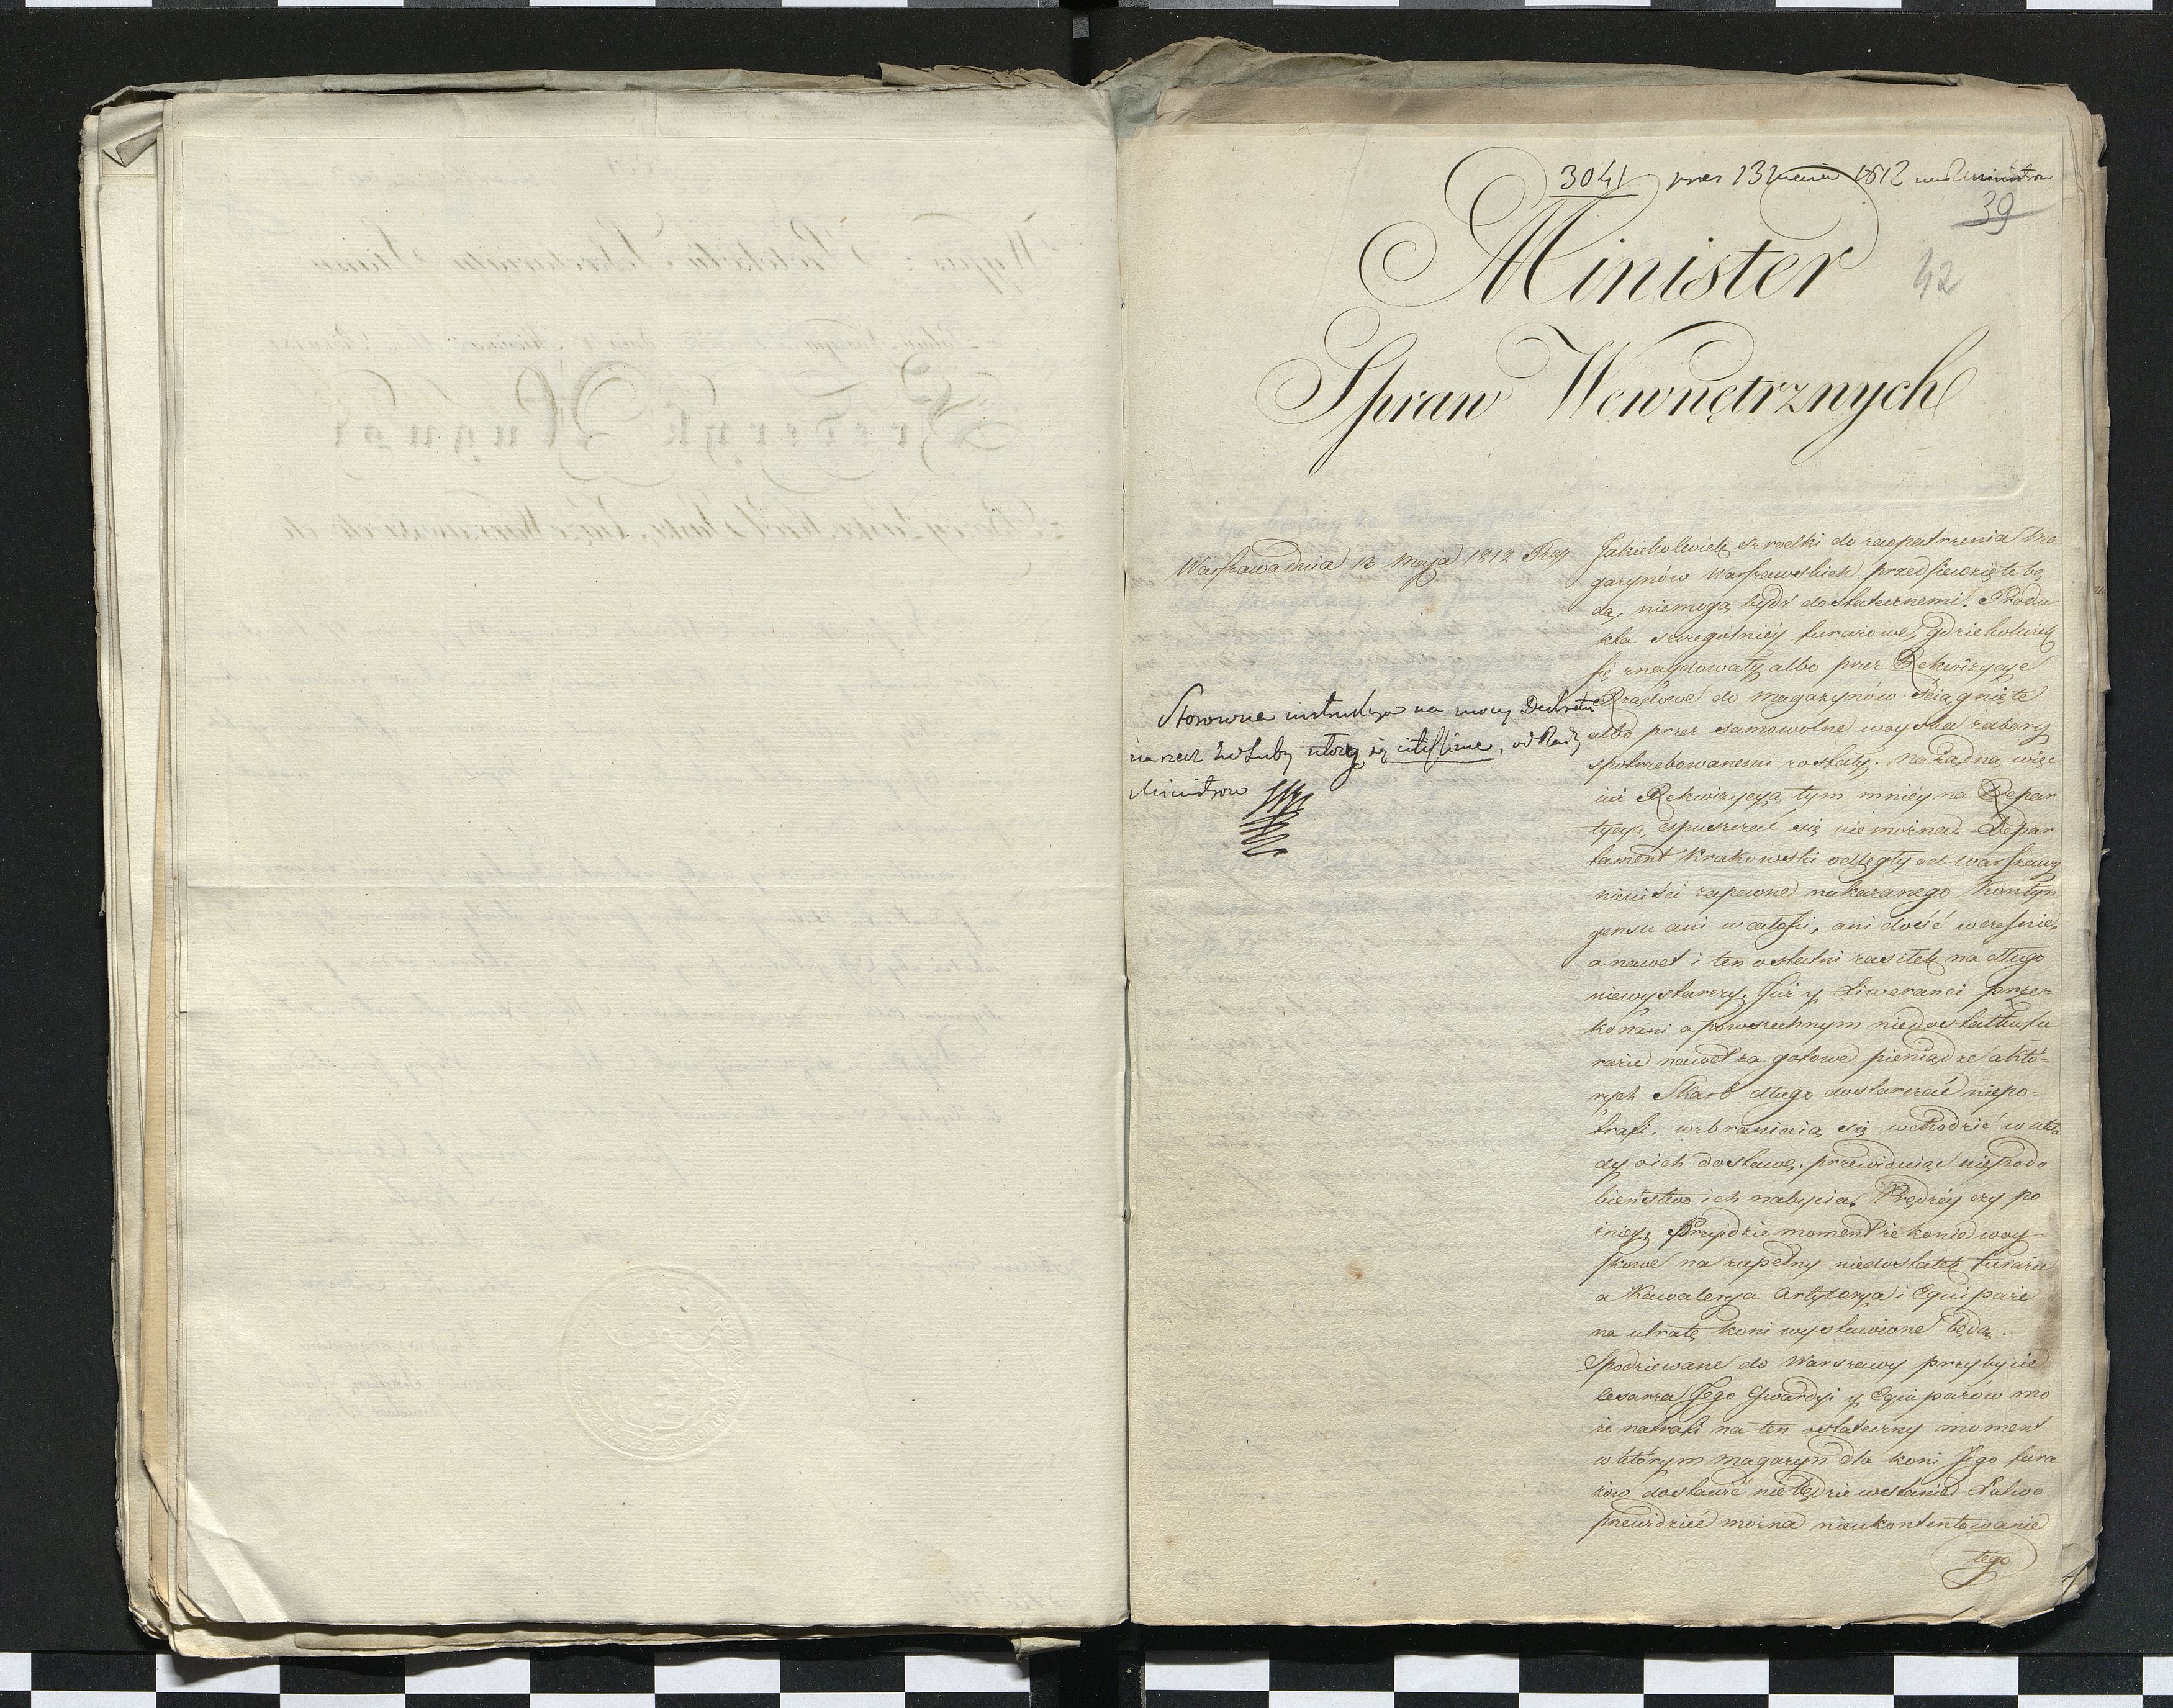 3041 pres 13 1812
39
42
Minister
Spraw Wewnętrznych
Warszawa dnia 13 Maja 1812 Roq
Stosowna instrukcya na mocy Dekretu
utoży się, od Rady
Ministrow
Jakiekolwiek szrodki do zaopatrzenia Ma
gazynów Warszawskich przedsiewzięte bę
dą, niemogą bydź dostatecznemi. Produ
kta szczególniéy furazowe, gdziekolwiek
się znaydowały albo przez Rekwizycye
Rządowe do Magazynów sciągnięte
albo przez samowolne woyska zabory
spotrzebowanemi zostały. Na żadną więc
iuż Rekwizycyą tym mniéy na Repar
tycyą spuszczać się nie można. Depar
tament Krakowski odległy od Warszawy
nieuiści zapewne nakazanego Kontyn
gensu ani w całości, ani dość wcześnie,
a nawet i ten ostatni zasiłek na długo
niewystarczy. Już y Liweranci prze-
konani o powszechnym niedostatku fu
razu nawet za gotowe pieniądze któ-
rych Skarb długo dostarczać niepo-
trafi, wzbraniaią się wchodzić w ukła
dy o ich dostawę, przewiduiąc niepodo
bieństwo ich nabycia. Prędzéy czy po
zniey, Przyidzie moment że konie woy-
skowe na zupełny niedostatek furażu
a Kawalerya Artylerya i Equipaże
na utratę koni wystawione będą.
Spodziewane do Warszawy przybycie
Cesarza Jego Gwardyi y Equipażów mo
że natrafi na ten ostateczny moment
w którym magazyn dla koni Jego fura
żow dostawić nie będzie wstanie. Łatwo
przewidzieć można nieukontentowanie
tego